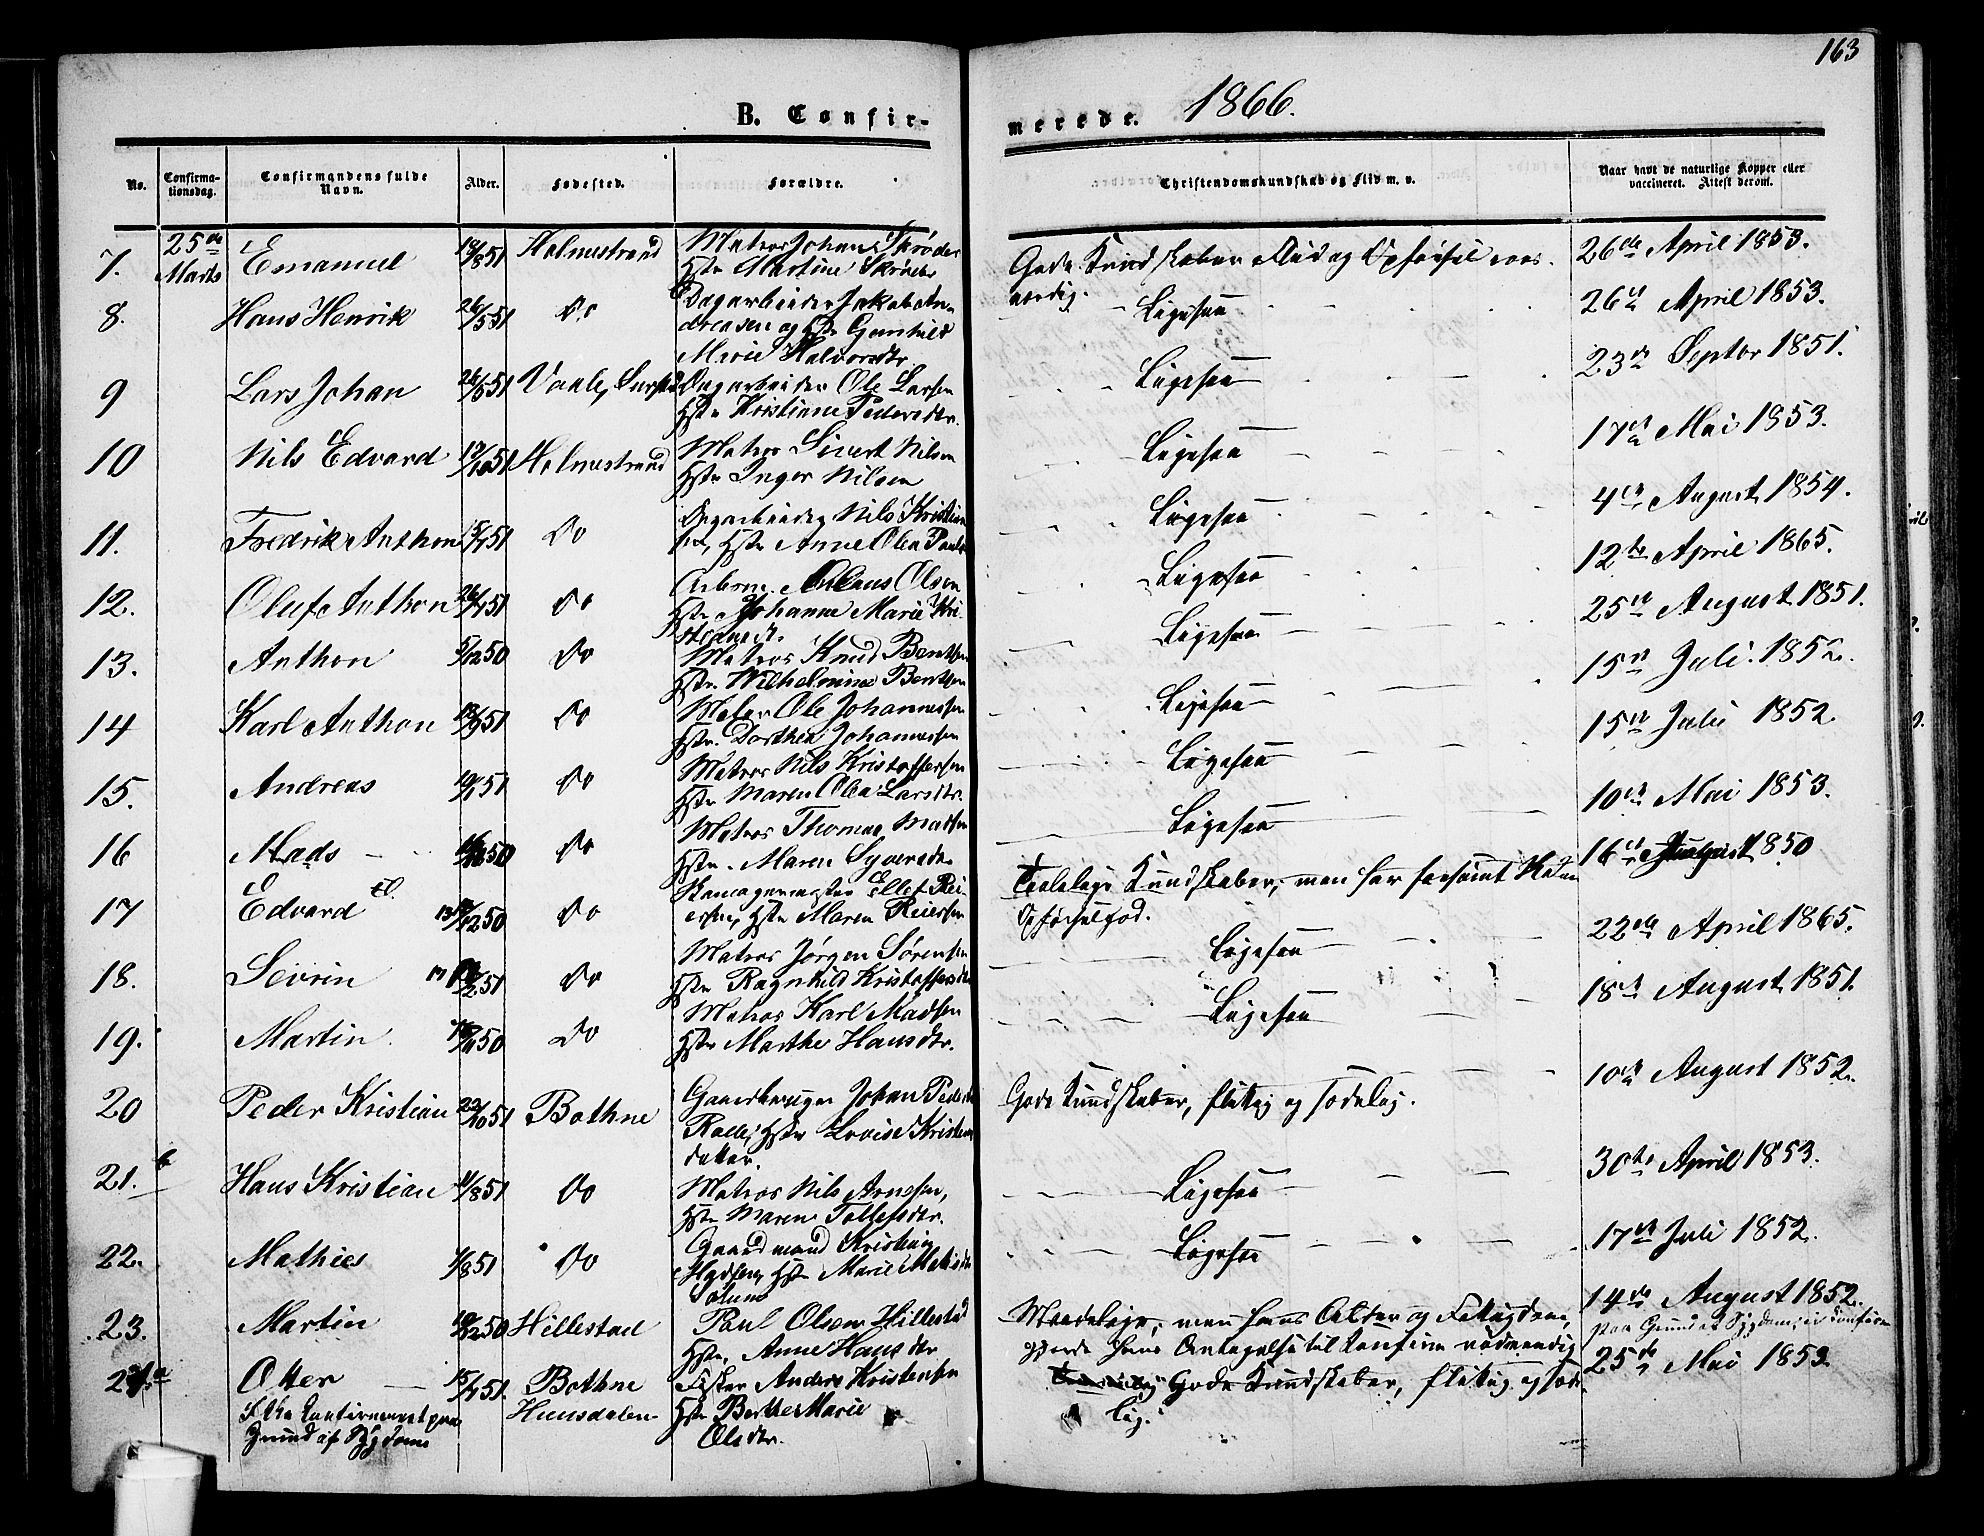 163
B. Confir-
merede. 1866.
No.
Confirma-
tionsdag.
Confirmandens fulde
Navn.
Alder.
Fødested.
Forældre.
Christendomskundskab og Flid m. v.
Naar havt de naturlige Kopper eller
vaccineret. Attest derom.
7. 25de Marts Emanuel 18/8 51 Holmestrand Matros Johan Skrøder
Hstr Martine Skrøder
Gode Kundskaber Flid og Opførsel roes-
værdig.
26de April 1853.
8. Hans Henrik 26/5 51 Do Dagarbeider Jakob An-
dreasen og Hstr Gunhild
Marie Halvorsdtr.
Ligesaa
26de April 1853.
9 Lars Johan 26/5 51 Vaale, Dagarbeider Ole Larsen
Hstr Kristiane Pedersdtr.
Ligesaa
23de Septbr 1851.
10 Nils Edvard 17/10 51 Holmestrand Matros Sivert Nilsen
Hstr Inger Nilsen
Ligesaa
17de Mai 1853.
11. Fredrik Anthon 51 Do Dagarbeider Nils Kristian
sen, Hstr Anne Olea Pauls
Ligesaa
4de August 1854.
12. Oluf Anthon 51 Do Arbm. Olsen
Hstr Johanne Marie Kri-
Ligesaa
12te April 1865.
13. Anthon 5/12 50 Do Matros Knud Bentsen
Hstr Wilhelmine Bentsen
Ligesaa
25de August 1851.
14 Karl Anthon 51 Do Maler Ole Johannessen
Hstr. Dorthea Johannessen
Ligesaa
15de Juli 1852.
15. Andreas 51 Do Matros Nils Kristoffersen
Hstr Maren Olea Larsdtr.
Ligesaa
15de Juli 1852.
16 Mads 50 Do Matros Thomas Madsen
Hstr. Maren Syversdtr
Ligesaa
10de Mai 1853.
17 Edvard 12 50 Do Skomagermester Ellef Rei-
ersen, Hstr Maren Reiersen
Kundskaber, men har forsømt
Opførsel god.
16de 1850
18. Sevrin 2 51 Do Matros Jørgen Sørensen
Hstr Ragnhild Kristoffersdtr
Ligesaa
22de April 1865.
19. Martin 50 Do Matros Karl Madsen
Hstr Marthe Hansdtr.
Ligesaa
18de August 1851.
20 Peder Kristian 22/10 51 Bothne Gaardbruger Johan Peder
Hstr Lovise Kristens
datter.
Gode Kundskaber, flittig og sædelig.
10de August 1852.
21. Hans Kristian 8 51 Do Matros Nils Arnesen,
Hstr Maren Tollefsdtr.
Ligesaa
30te April 1853.
22. Mathies 8 51 Do Gaardmand Kristian
Hstr Marie
Solum
Ligesaa
17de Juli 1852.
23. Martin 12 50 Hillestad Paul Olsen Hillestad
Hstr, Anne Hansdtr
Maadelige, men hans Alder og Fattigdom,
gjorde hans Antagelse til Konfirm nødvendig
14de August 1852.
paa Grund af Sygdom, ei konfirm
24. Otter 51 Bothne
Hunsdalen Fisker Anders Kristensen
Hstr Berthe Marie
Olsdtr.
Gode Kundskaber, flittig og sæde-
lig.
25de Mai 1853.
Ikke konfirmeret paa
Grund af Sygdom